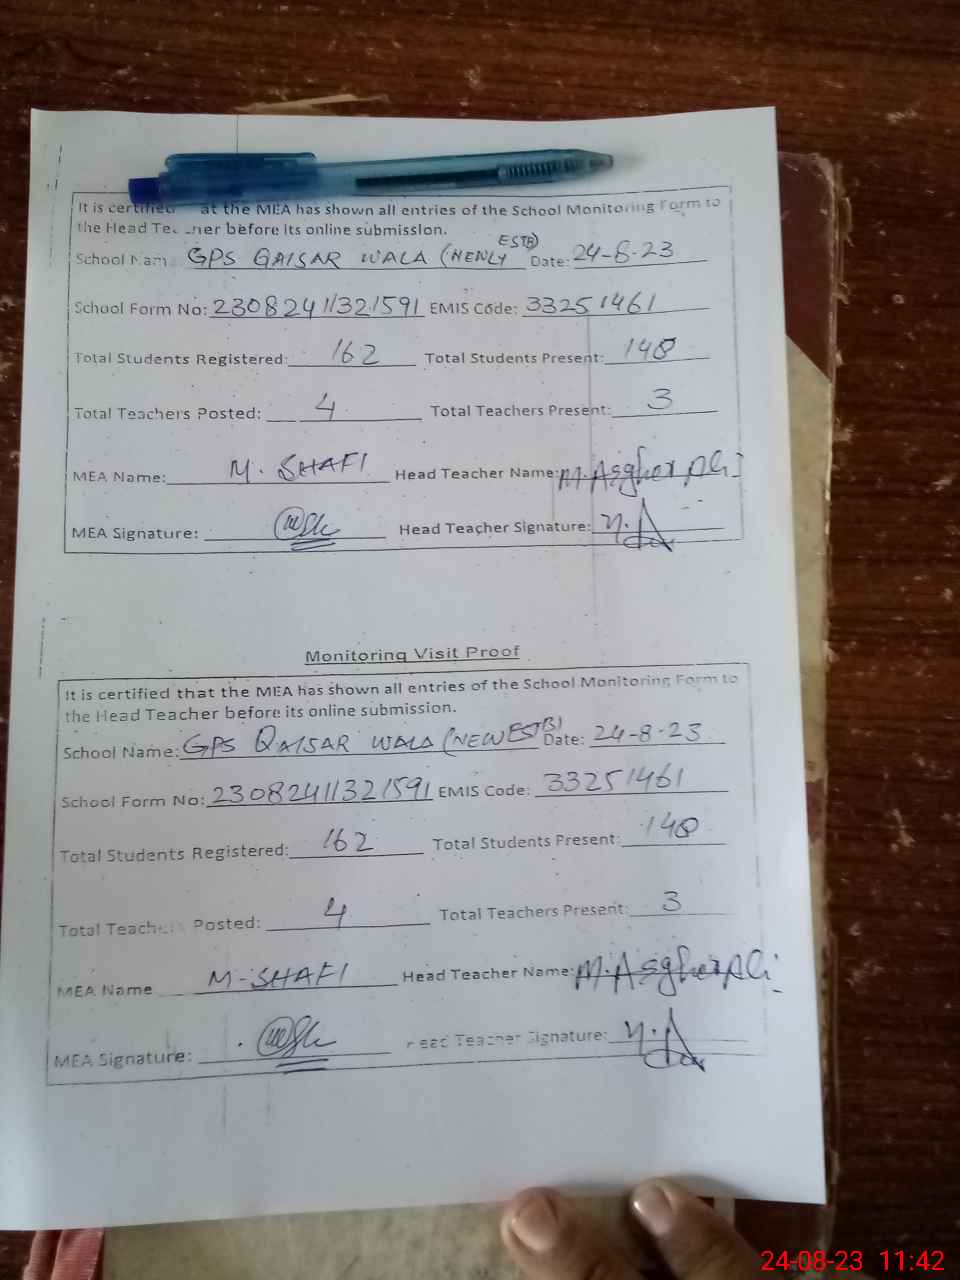 It is certified at the MEA has shown all entries of the School Monitoring Form to
the Head Te ner before its online submission.
School Nam GPS QAISAR WALA (NEWLY ESTB) Date: 24-8-23
School Form No: 23082411321591 EMIS Code: 33251461
Total Students Registered: 162 Total Students Present: 148
Total Teachers Posted: 4 Total Teachers Present: 3
MEA Name: M. SHAFI Head Teacher Name: M. Asgher Ali
MEA Signature: Head Teacher Signature:
Monitoring Visit Proof
It is certified that the MEA has shown all entries of the School Monitoring Form to
the Head Teacher before its online submission.
School Name: GPS QAISAR WALA (NEW ESTB) Date: 24-8-23
School Form No: 23082411321591 EMIS Code: 33251461
Total Students Registered: 162 Total Students Present: 148
Total Teach Posted: 4 Total Teachers Present: 3
MEA Name M-SHAFI Head Teacher Name: M. Asgher Ali
MEA Signature: ead Teacher Signature:
24-08-23 11:42